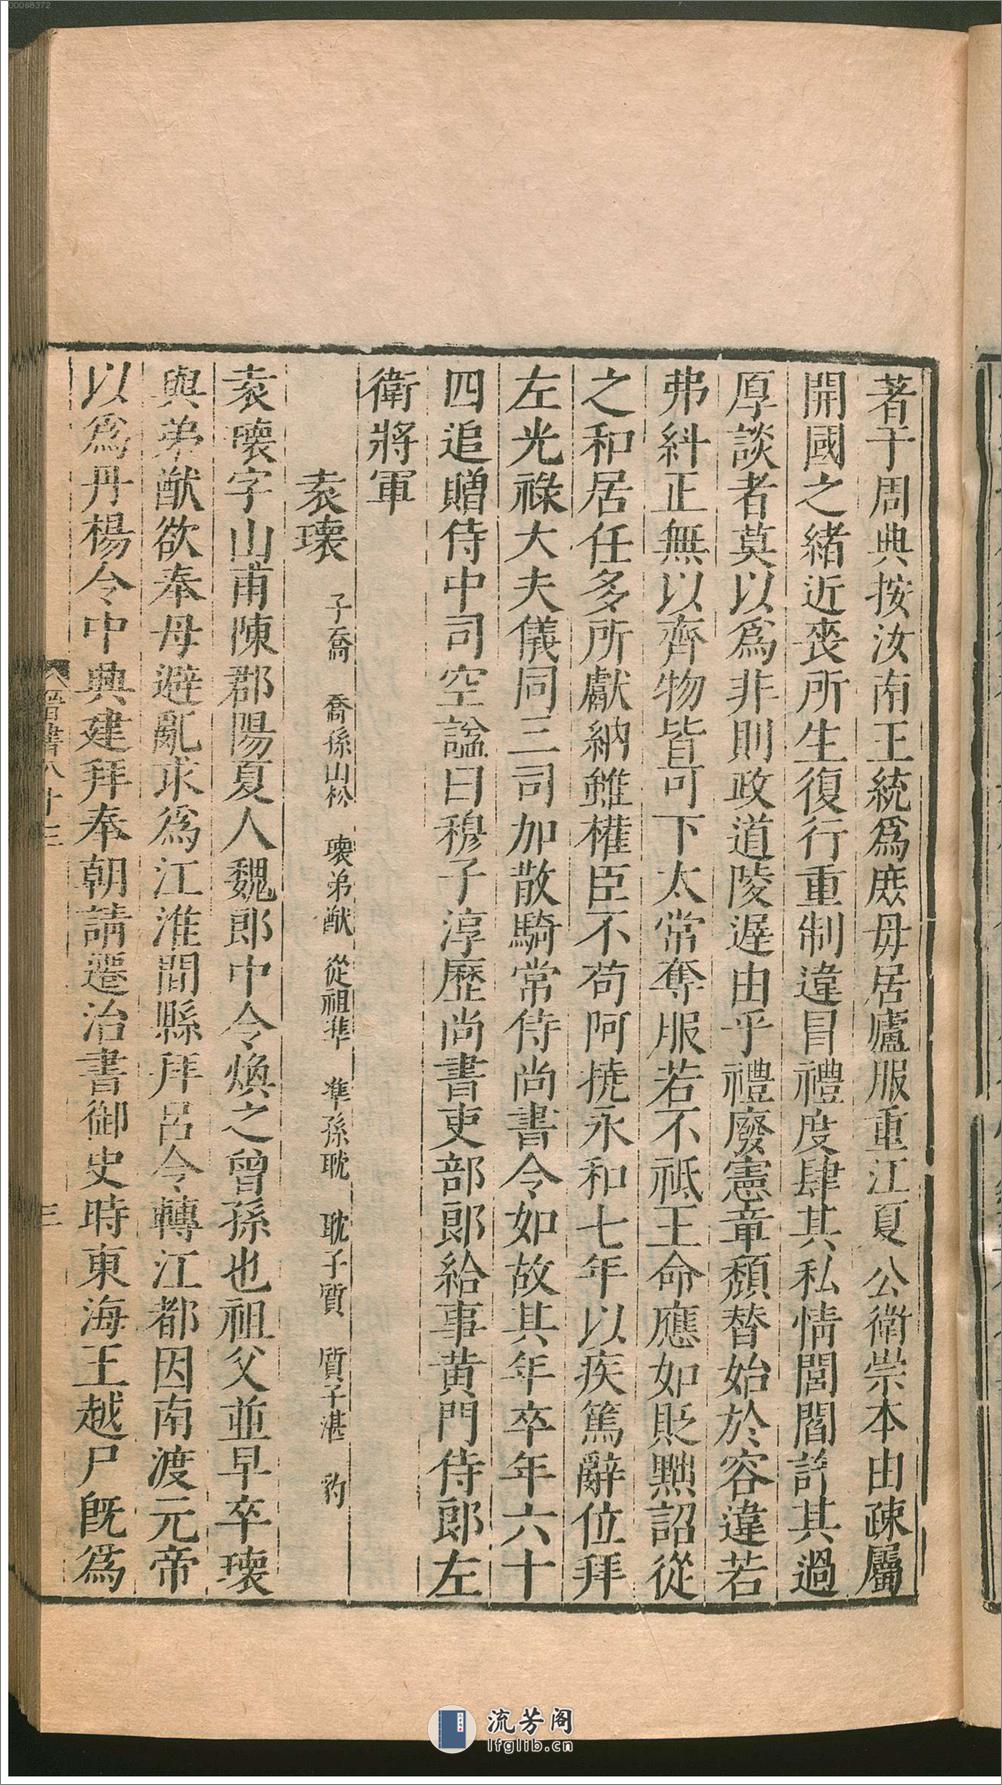 著于周典按汝南王統爲庶母居廬服重江夏公衛崇本由疎屬
開國之緒近喪所生復行重制違冒禮度肆其私情閭閻許其過
厚談者莫以爲非則政道陵遲由乎禮廢憲章頽替始於容違若
弗糾正無以齊物皆可下太常奪服若不祗王命應如貶黜詔從
之和居任多所獻納雖權臣不苟阿撓永和七年以疾篤辭位拜
左光祿大夫儀同三司加散騎常侍尚書令如故其年卒年六十
四追贈侍中司空諡曰穆子淳歷尚書吏部郎給事黄門侍郎左
衛將軍
袁瓌 子喬 喬孫山松 瓌弟猷 從祖準 準孫耽 耽子質 質子湛 豹
袁瓌字山甫陳郡陽夏人魏郎中令煥之曾孫也祖父並早卒瓌
與弟猷欲奉母避亂求爲江淮間縣拜呂令轉江都因南渡元帝
以爲丹楊令中興建拜奉朝請遷治書御史時東海王越尸旣爲
晉書八十三
三
流芳阁
lfglib.cn
00068372